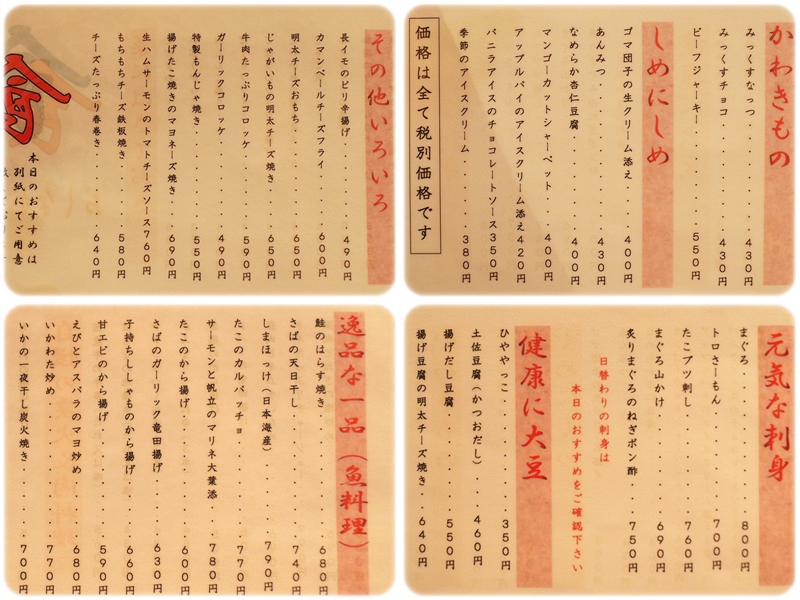 その他いろいろ
長イモのピリ辛揚げ・・・・・・・490円
カマンベールチーズフライ・・・・・600円
明太チーズおもち・・・・・・・・650円
じゃがいもの明太チーズ焼き・・・・650円
牛肉たっぷりコロッケ・・・・・・590円
ガーリックコロッケ・・・・・・・490円
特製もんじゃ焼き・・・・・・・・550円
揚げたこ焼きのマヨネーズ焼き・・・690円
生ハムサーモンのトマトチーズソース760円
もちもちチーズ鉄板焼き・・・・・580円
チーズたっぷり春巻き・・・・・・640円
本日のおすすめは
別紙にてご用意
かわきもの
みっくすなっつ・・・・・・・・430円
みっくすチョコ・・・・・・・・430円
ビーフジャーキー・・・・・・・550円
しめにしめ
ゴマ団子の生クリーム添え・・・・400円
あんみつ・・・・・・・・・・430円
なめらか杏仁豆腐・・・・・・・400円
マンゴーカットシャーベット・・・400円
アップルパイのアイスクリーム添え420円
バニラアイスのチョコレートソース350円
季節のアイスクリーム・・・・・380円
価格は全て税別価格です
逸品な一品(魚料理)
鮭のはらす焼き・・・・・・・・680円
さばの天日干し・・・・・・・・740円
しまほっけ(日本海産)・・・・・790円
たこのカルパッチョ・・・・・・770円
サーモンと帆立のマリネ大葉添・・・780円
たこのから揚げ・・・・・・・・600円
さばのガーリック竜田揚げ・・・・630円
子持ちししゃものから揚げ・・・・660円
甘エビのから揚げ・・・・・・・590円
えびとアスパラのマヨ炒め・・・・680円
いかわた炒め・・・・・・・・・770円
いかの一夜干し炭火焼き・・・・・700円
元気な刺身
まぐろ・・・・・・・・・・・800円
トロさーもん・・・・・・・・700円
たこブツ刺し・・・・・・・・760円
まぐろ山かけ・・・・・・・・690円
炙りまぐろのねぎポン酢・・・・750円
日替わりの刺身は
本日のおすすめをご確認下さい
健康に大豆
ひややっこ・・・・・・・・・350円
土佐豆腐(かつおだし)・・・・460円
揚げだし豆腐・・・・・・・・550円
揚げ豆腐の明太チーズ焼き・・・640円